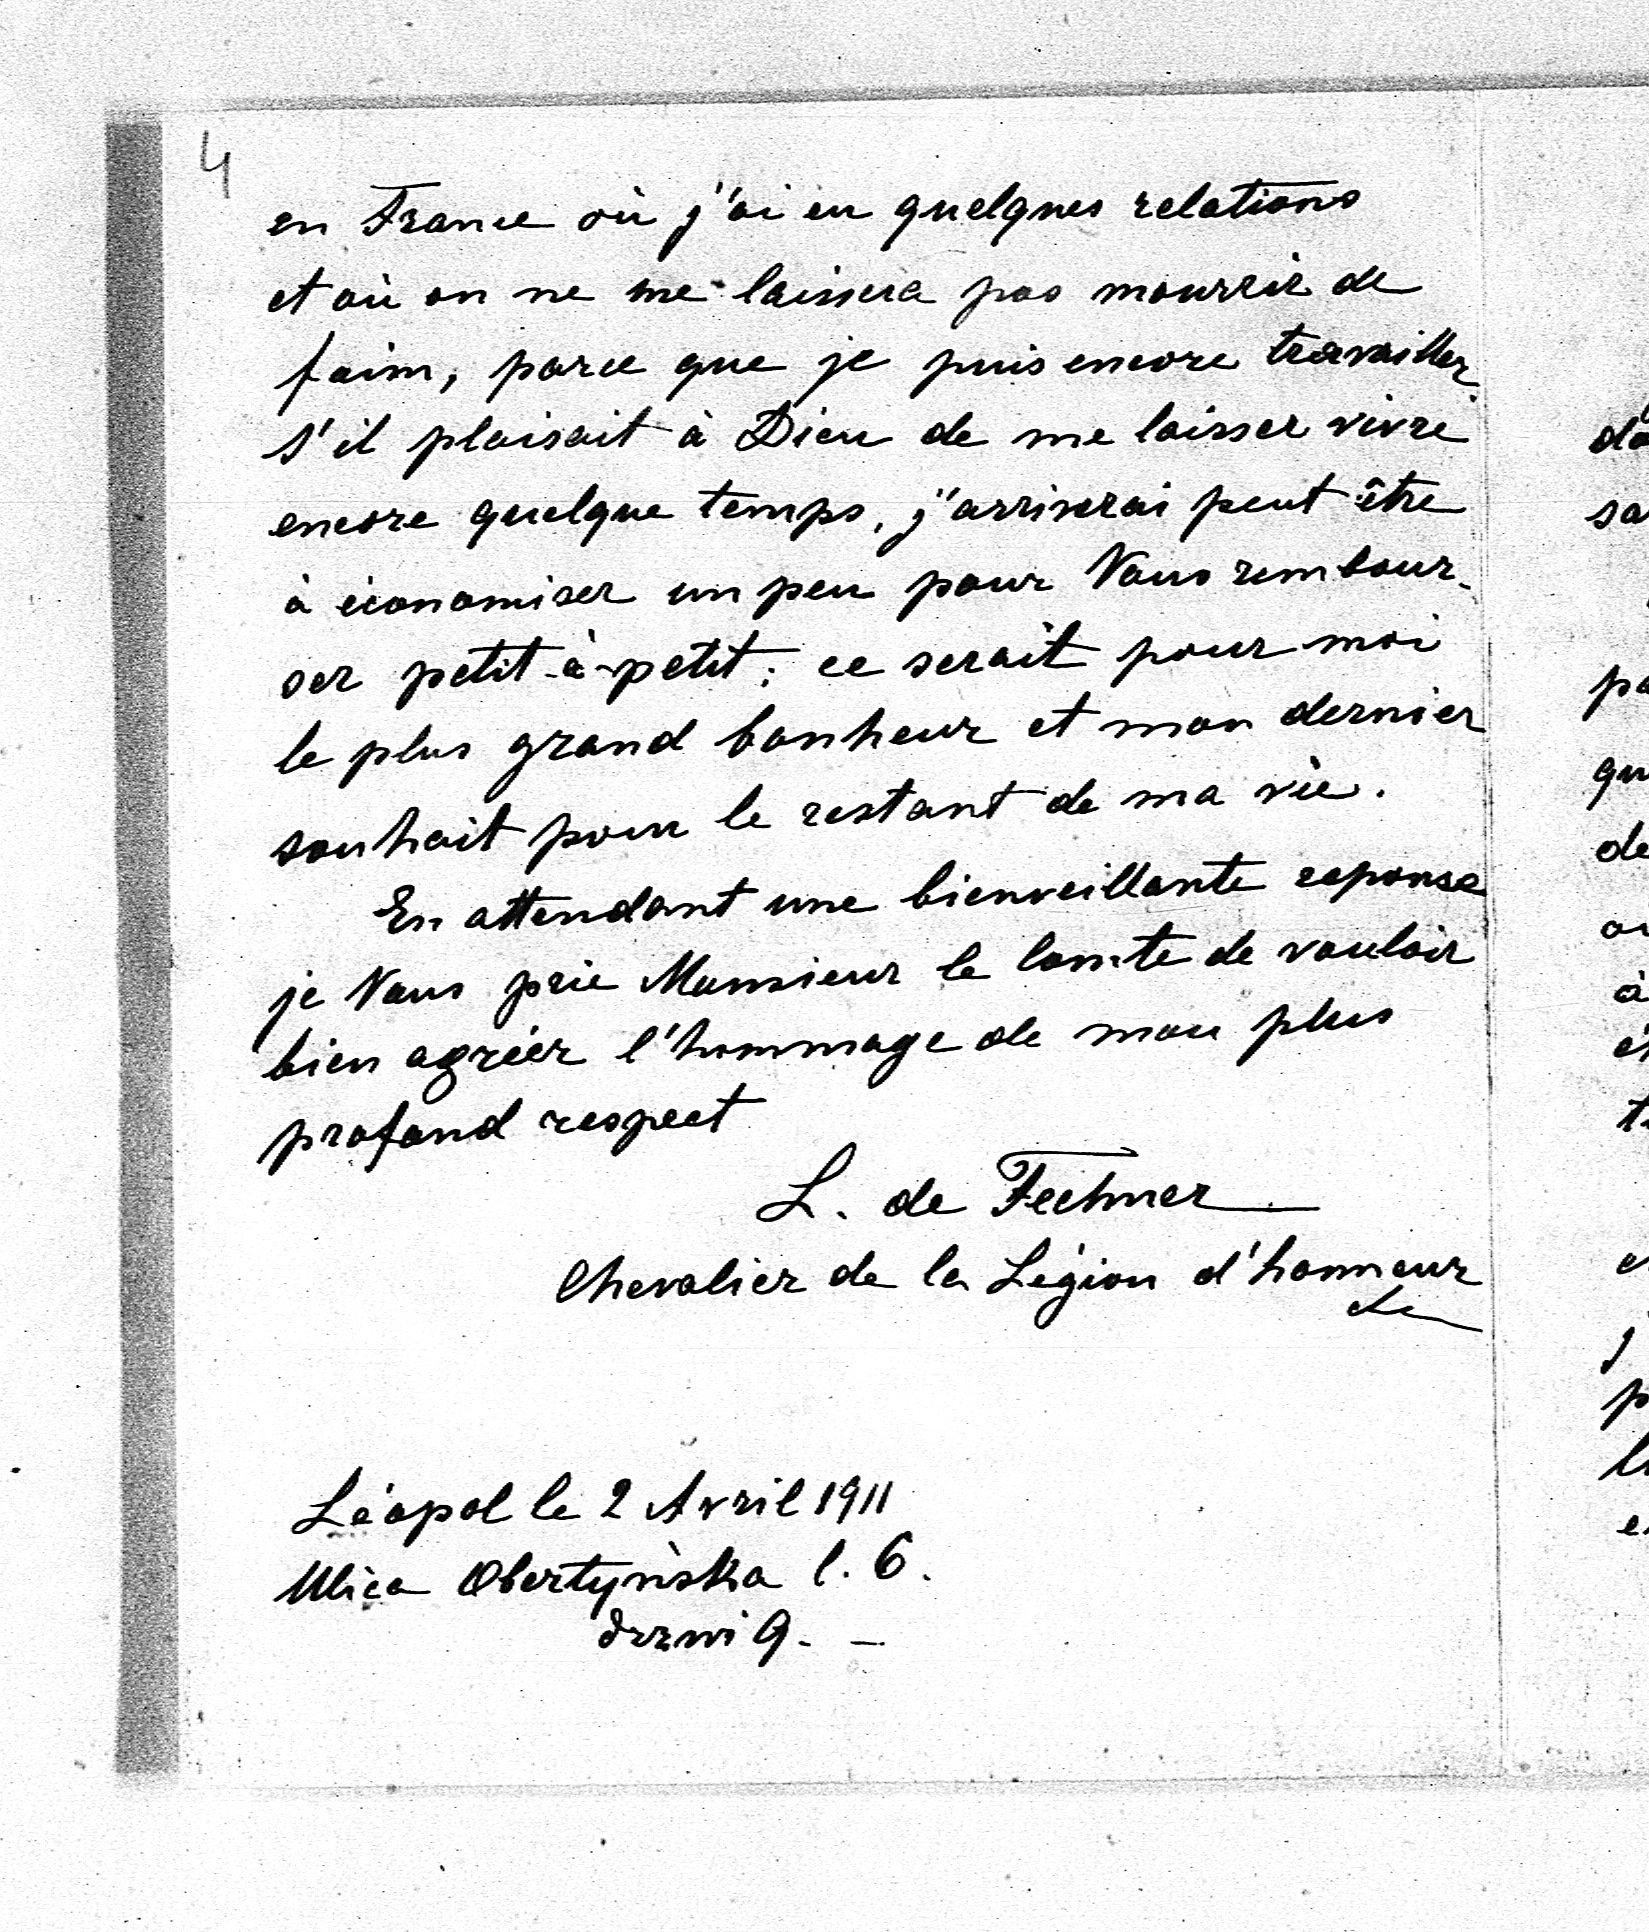 4
en France où j'ai eu quelques relations
et où on ne me laissera pas mourrir de
faim, parce que je puis encore travailler.
s'il plaisait à Dieu de me laisser vivre
encore quelque temps, j'arriverai peut être
à économiser un peu pour Vous rembour-
ser petit-à-petit; ce serait pour moi
le plus grand bonheur et mon dernier
souhait pour le restant de ma vie.
En attendant une bienveillante reponse
je Vous prie Monsieur le Comte de vouloir
bien agréer l'hommage de mon plus
profond respect
L. de Fechner
Chevalier de la Légion d'honneur
Léopol le 2 Avril 1911
Ulica Obertyńska l. 6.
drzwi 9. –